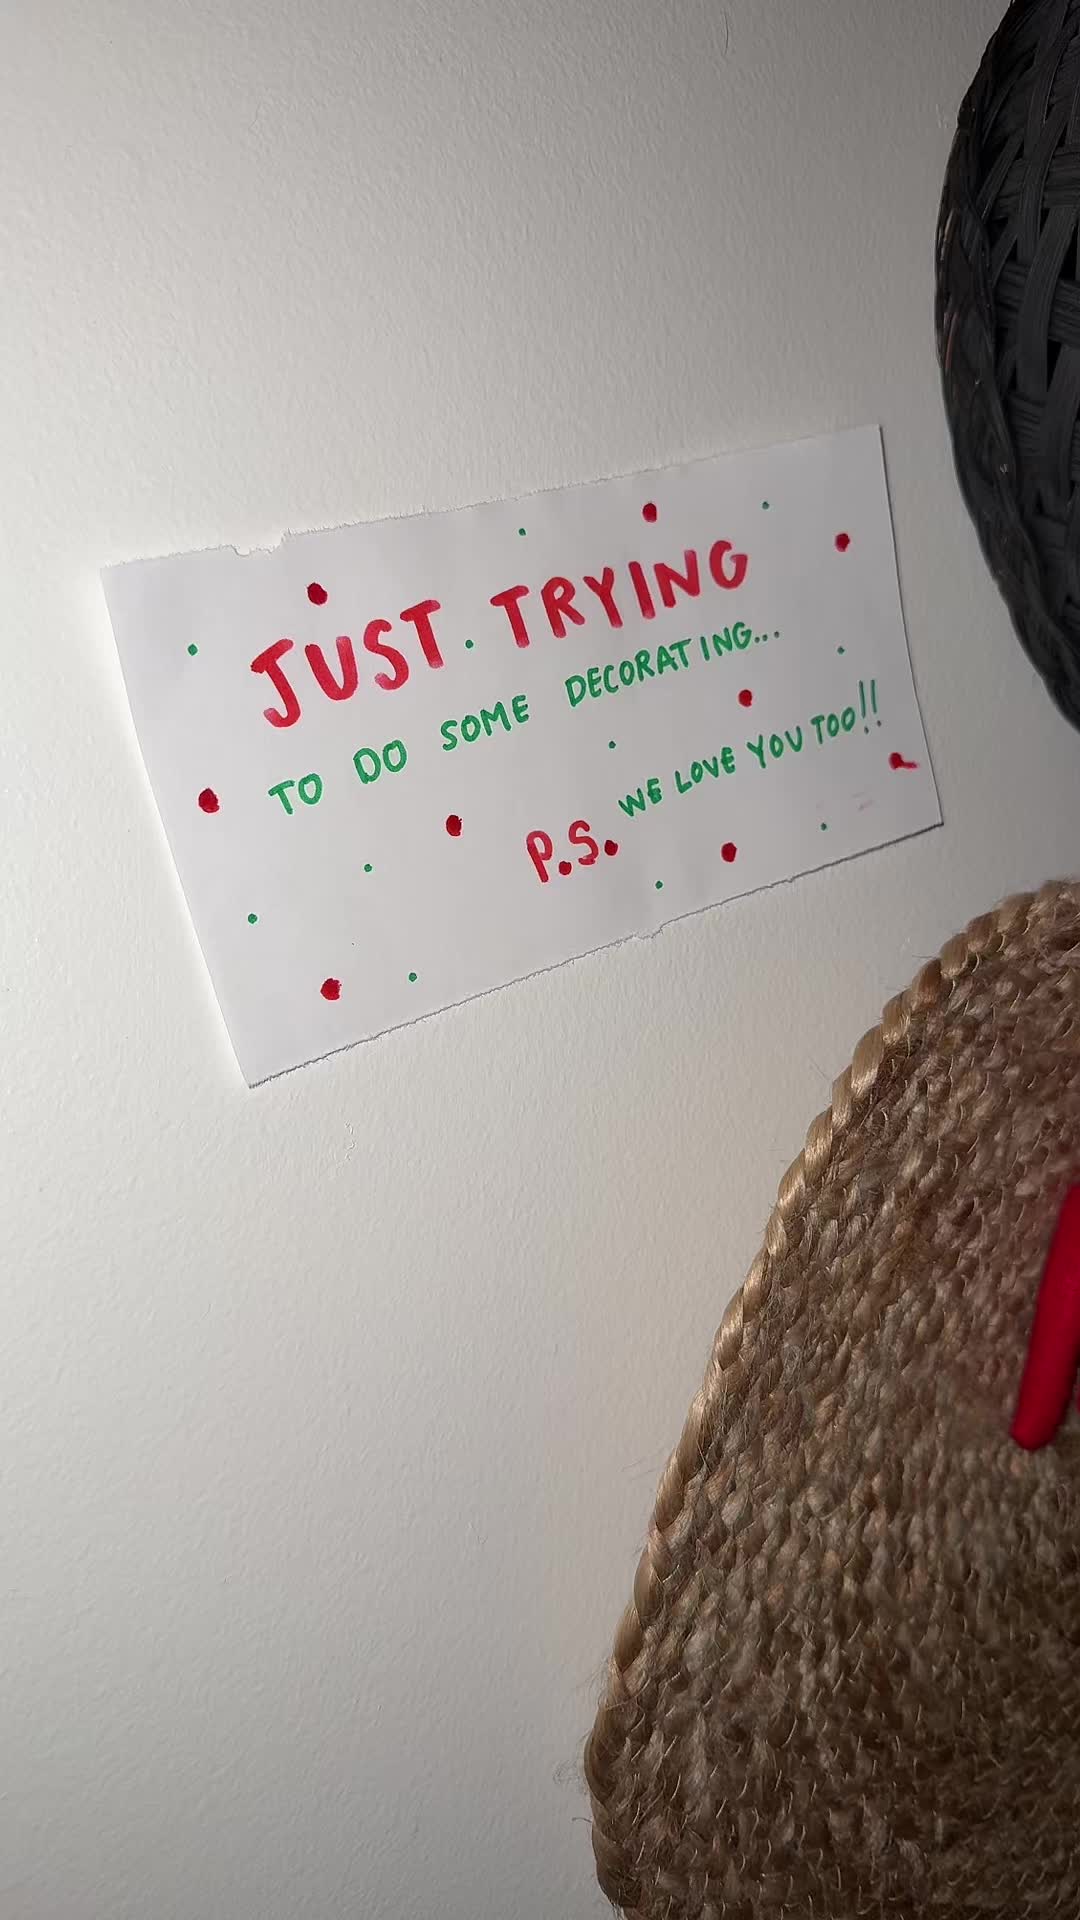 JUST TRYING
TO DO SOME DECORATING...
P.S. WE LOVE YOU TOO!!